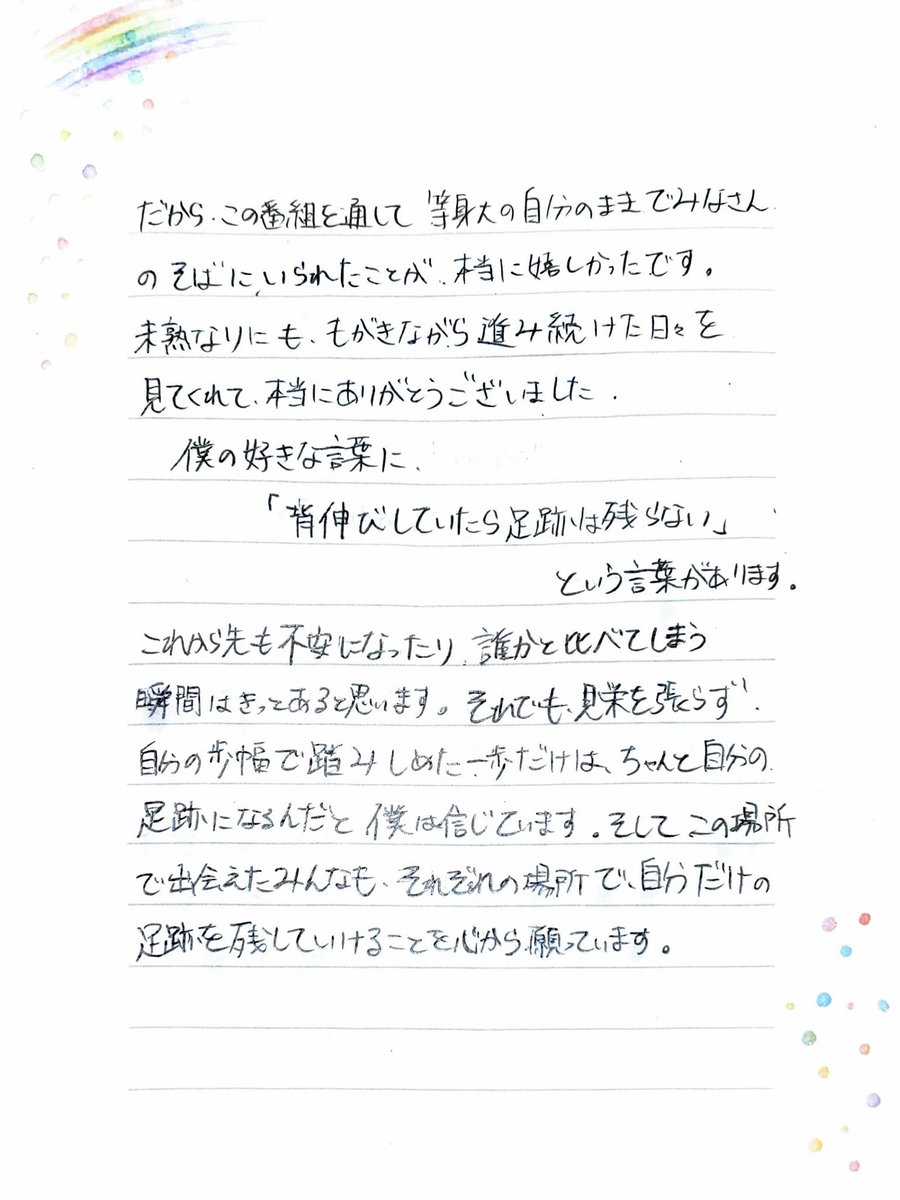 だから、この番組を通して 等身大の自分のままでみなさん
のそばにいられたことが、本当に嬉しかったです。
未熟なりにも、もがきながら進み続けた日々を
見てくれて、本当にありがとうございました。
僕の好きな言葉に、
「背伸びしていたら足跡は残らない」
という言葉があります。
これから先も不安になったり、誰かと比べてしまう
瞬間はきっとあると思います。それでも、見栄を張らず、
自分の歩幅で踏みしめた一歩だけは、ちゃんと自分の
足跡になるんだと 僕は信じています。そして、この場所
で出会えたみんなも、それぞれの場所で、自分だけの
足跡を残していけることを心から願っています。